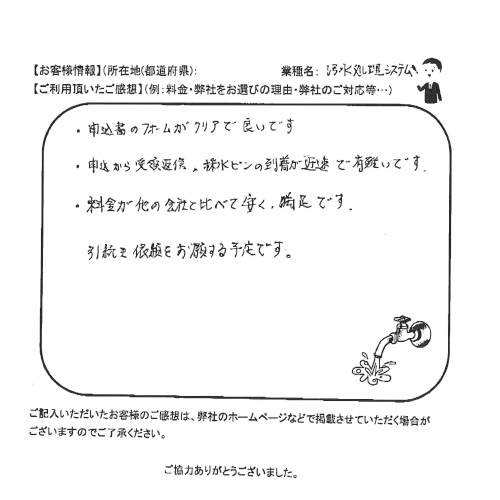 【お客様情報】(所在地(都道府県): 業種名: 汚水処理システム
【ご利用頂いたご感想】(例:料金・弊社をお選びの理由・弊社のご対応等…)
・申込書のフォームがクリアで良いです
・申込から受領返信、採水ビンの到着が迅速で有難いです.
・料金が他の会社と比べて安く、満足です.
引続き依頼をお願する予定です。
ご記入いただいたお客様のご感想は、弊社のホームページなどで掲載させていただく場合が
ございますのでご了承ください。
ご協力ありがとうございました。